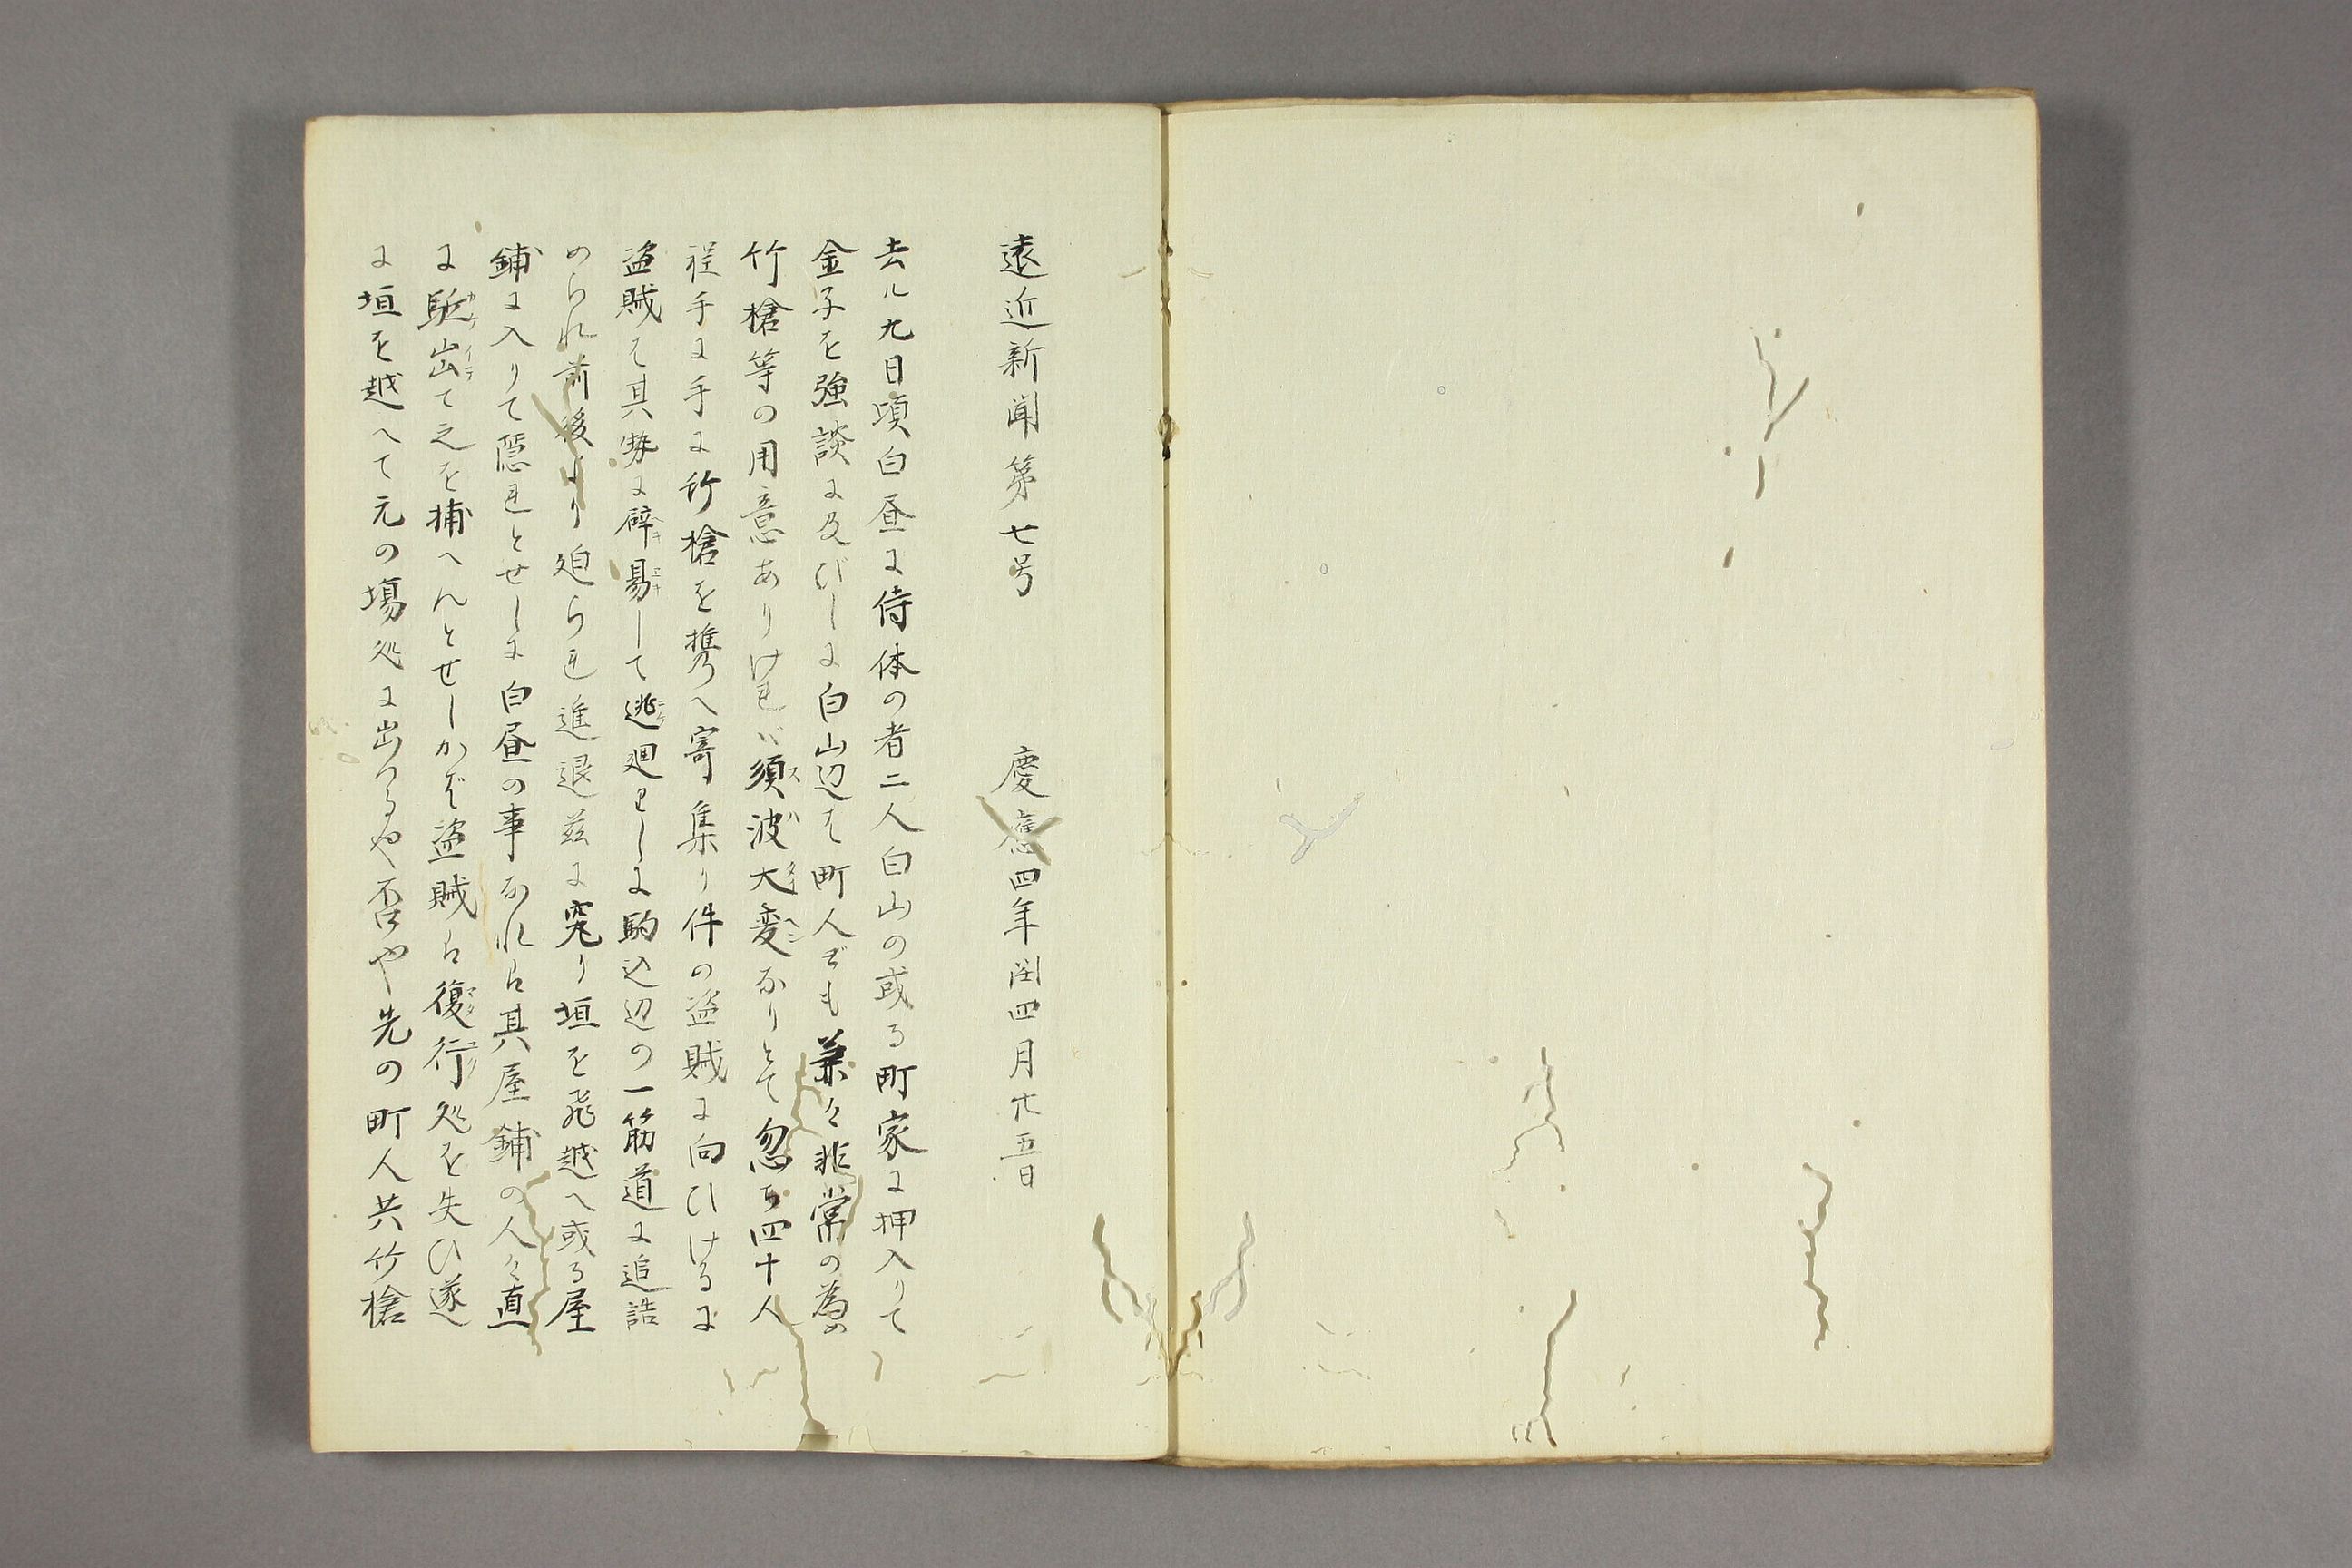 遠近新聞第七号　慶應四年閏四月廿五日
去ル九日頃白昼に侍体の者二人白山の或る町家に押入りて
金子を強談に及びしに白山辺は町人ども兼々非常の為め
竹槍等の用意ありければ須波大変なりとて忽ち四十人
程手に手に竹槍を携へ寄集り件の盗賊に向ひけるに
盗賊は其勢に辟易して逃廻りしに駒込辺の一筋道に追詰
められ前後より廹られ進退茲に究り垣を飛越へ或る屋
鋪に入りて隠れとせしに白昼の事なれは其屋鋪の人々直
に駈出て之を捕へんとせしかば盗賊は復行処を失ひ遂
に垣を越へて元の場処に出つるや否や先の町人共竹槍